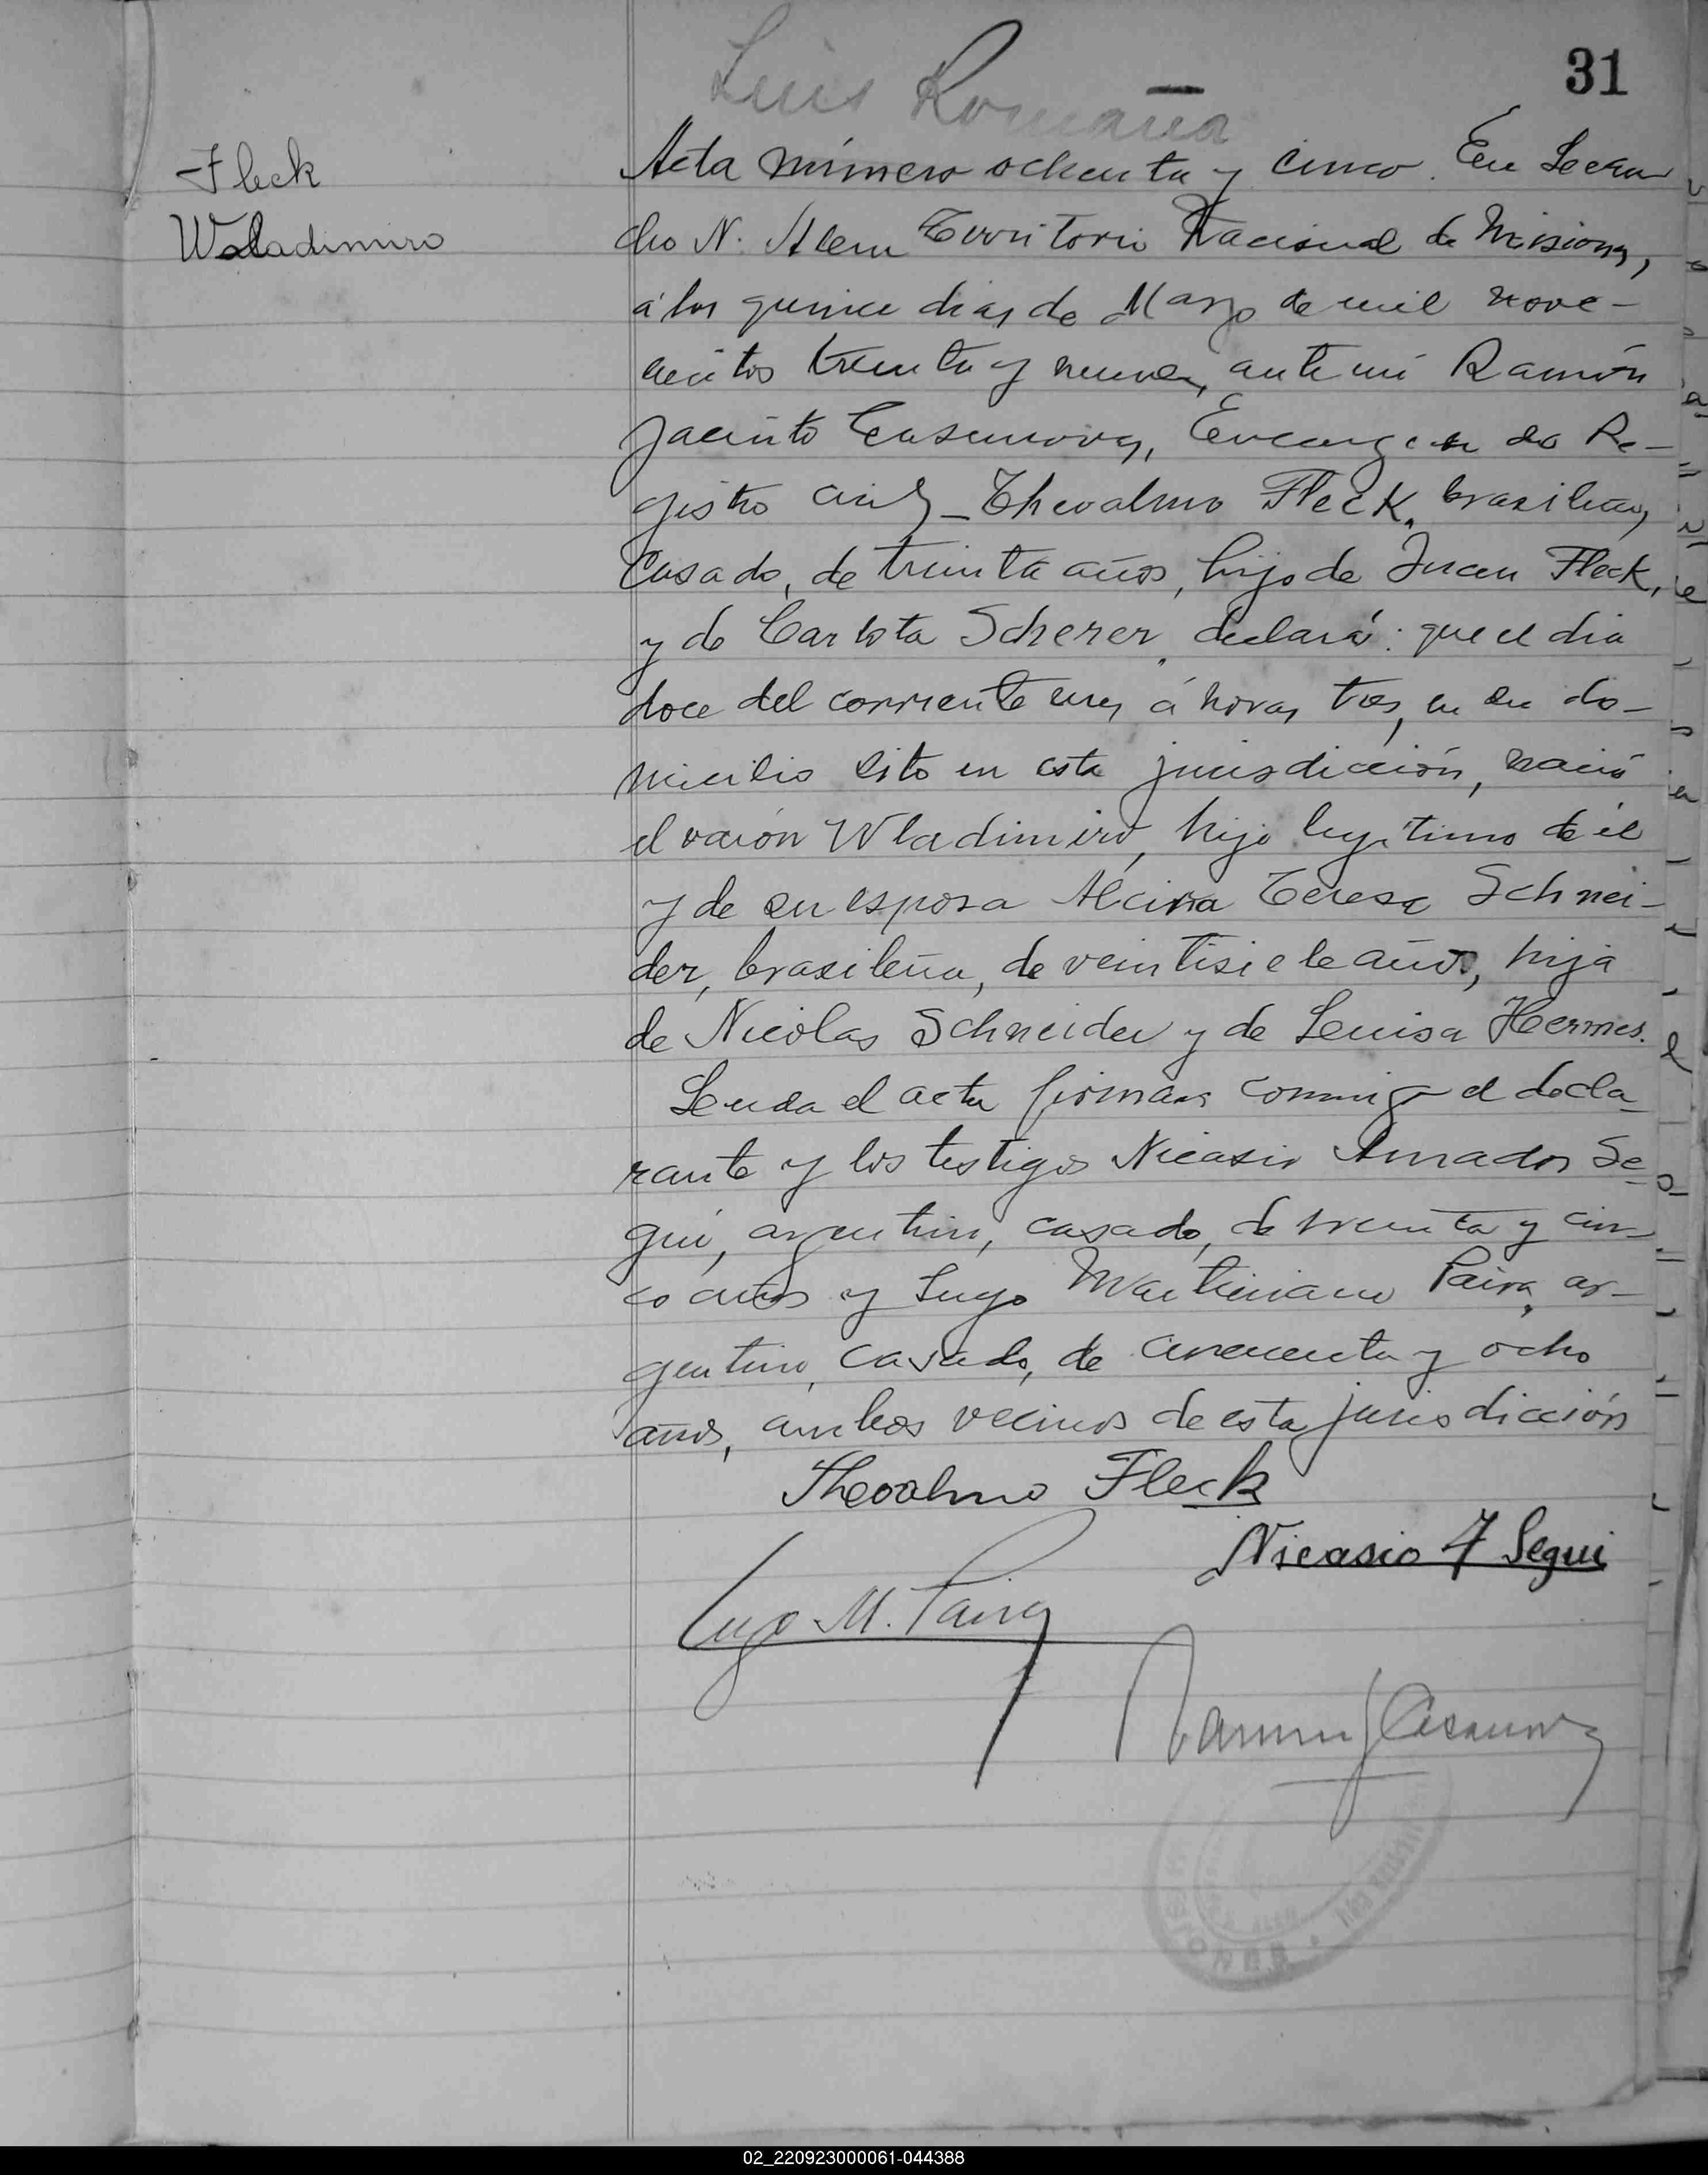 31
Luis Romaña
Fleck
Waladimiro
Acta número ochenta y cinco. En Lean
dro N. Alem Territorio Nacional de Misiones,
á los quince dias de Marzo de mil nove-
cientos treinta y nueve, ante mi Ramón
Jacinto Casanova, Encargado do Re-
gistro civil - Thevalmo Fleck, brasileño,
casado, de treinta años, hijo de Juan Fleck,
y de Carlota Scherer, declaró: que el dia
doce del corriente mes á horas tres, en su do-
micilio sito en esta jurisdicción, nació
el varón Wladimiro, hijo legitimo de él
y de su esposa Alcina Teresa Schnei-
der, brasileña, de veintisiete años, hija
de Nicolas Schneider y de Luisa Hermes.
Leida el acta firman conmigo el decla-
rante y los testigos Nicasio Amador Se-
gui, argentino, casado, de treinta y cin-
co años y Lugo Martiniano Paiva, ar-
gentino, casado, de cincuenta y ocho
años, ambos vecinos de esta jurisdicción
Thevalmo Fleck
Nicasio A Segui
Lugo M. Paiva
Ramón J Casanova
MISIONES
02_220923000061-044388